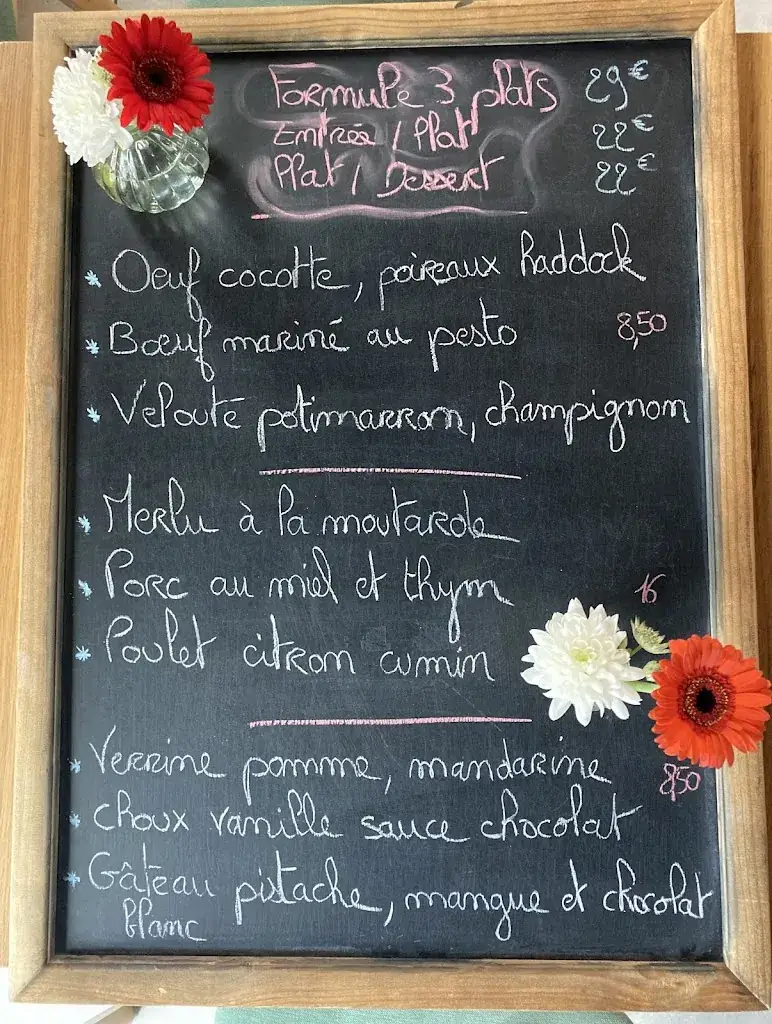 Formule 3 plats 29€
Entrée / Plat 22€
Plat / Dessert 22€
* Oeuf cocotte, poireaux haddock
* Bœuf mariné au pesto 8,50
* Velouté potimarron, champignon
* Merlu à la moutarde
* Porc au miel et thym 16
* Poulet citron cumin
* Verrine pomme, mandarine 8,50
* choux vanille sauce chocolat
* Gâteau pistache, mangue et chocolat
blanc